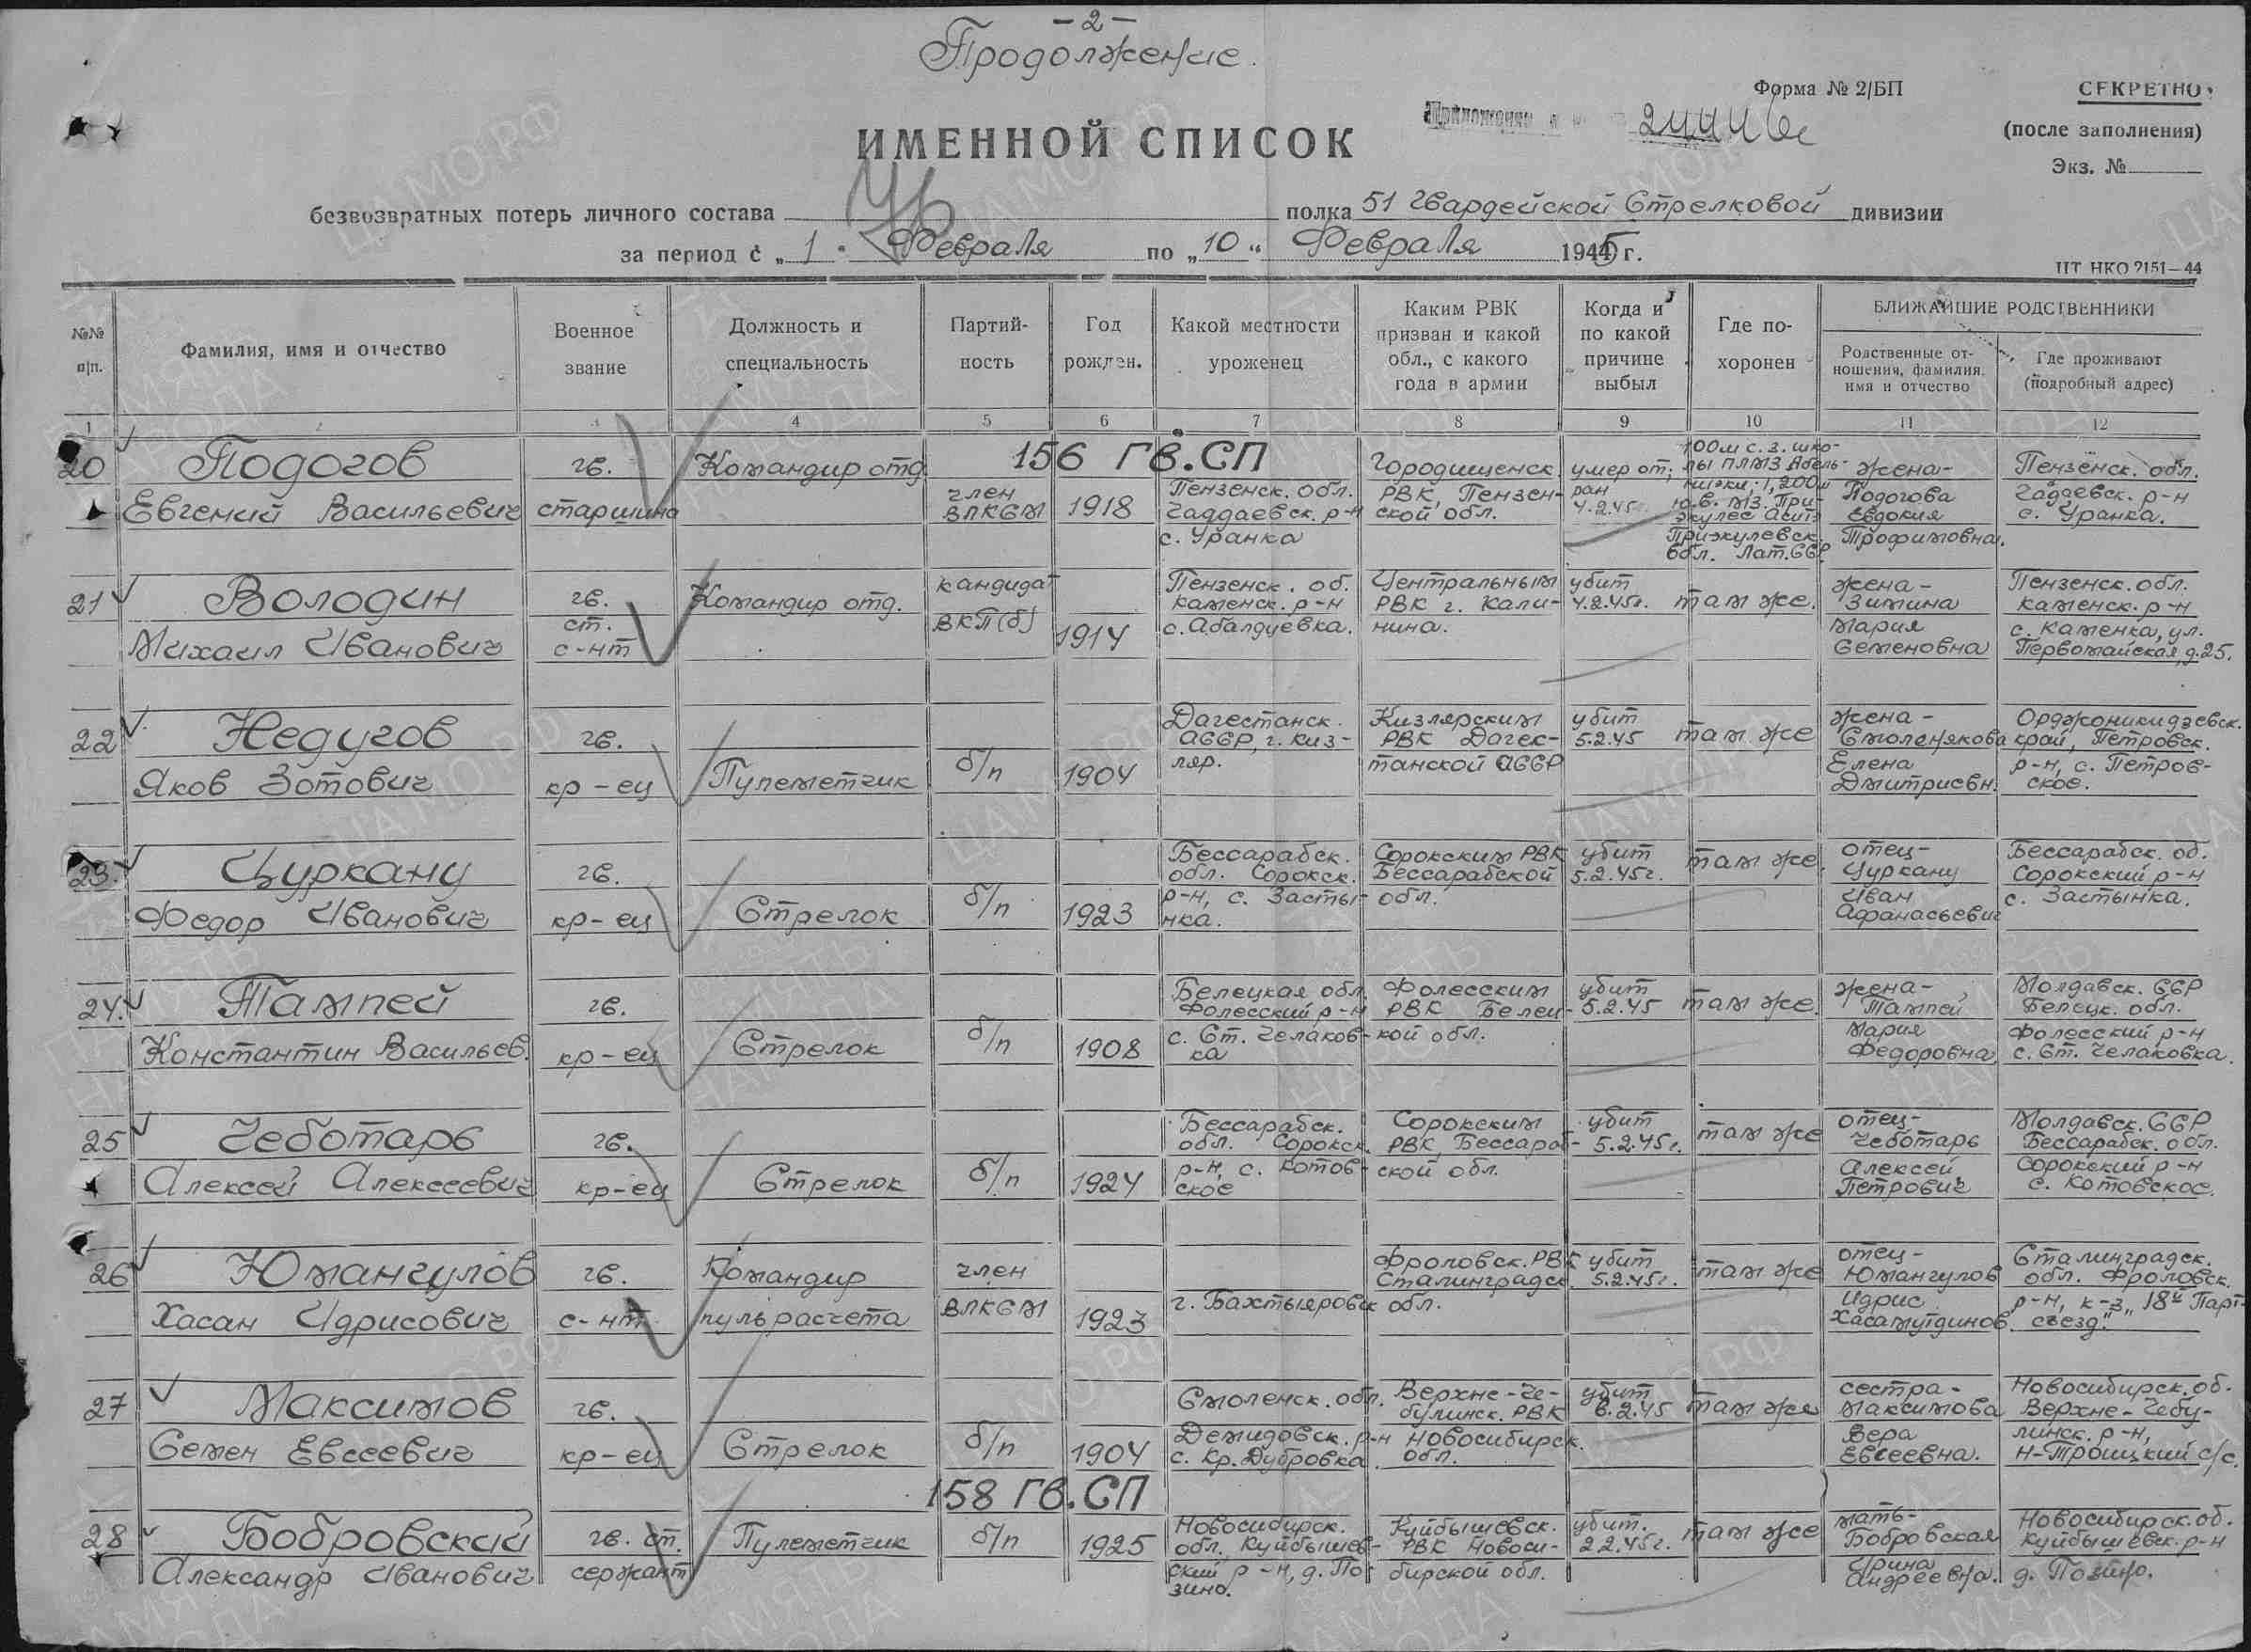 - 2 -
Продолжение.
Форма № 2/БП
СЕКРЕТНО
(после заполнения)
Экз. №
ИМЕННОЙ СПИСОК
безвозвратных потерь личного состава полка 51 Гвардейской Стрелковой дивизии
за период с „1" Февраля по „10" Февраля 1945 г.
ЦТ НКО 2151—44
№№ п|п.
Фамилия, имя и отчество
Военное звание
Должность и специальность
Партий-ность
Год рожден.
Какой местности уроженец
Каким РВК призван и какой обл., с какого года в армии
Когда и по какой причине выбыл
Где по-хоронен
БЛИЖАЙШИЕ РОДСТВЕННИКИ
Родственные от-ношения, фамилия, имя и отчество
Где проживают (подробный адрес)
1 2 3 4 5 6 7 8 9 10 11 12
156 ГВ.СП
20 Подогов Евгений Васильевич
гв. старшина
Командир отд.
член ВЛКСМ
1918
Пензенск. обл. Гаддаевск. р-н с. Уранка
Городищенск. РВК, Пензен-ской обл.
умер от ран 4.2.45г.
100м с.з. шко-лы 1,200м ю.в. Приэкулевск. Лат.ССР
жена- Подогова Евдокия Трофимовна.
Пензенск. обл. Гадаевск. р-н с. Уранка.
21 Володин Михаил Иванович
гв. ст. с-нт
Командир отд.
кандидат ВКП(б)
1914
Пензенск. об. Каменск. р-н с. Абалдуевка.
Центральным РВК г. Кали-нина.
убит 4.2.45г.
там же.
жена- Зимина Мария Семеновна
Пензенск. обл. Каменск. р-н с. Каменка, ул. Первомайская, д.25.
22 Недугов Яков Зотович
гв. кр-ец
Пулеметчик
б/п
1904
Дагестанск. АССР, г. Киз-ляр.
Кизлярским РВК Дагес-танской АССР
убит 5.2.45
там же
жена- Смоленякова Елена Дмитриевн.
Орджоникидзевск. край, Петровск. р-н, с. Петров-ское.
23. Цуркану Федор Иванович
гв. кр-ец
Стрелок
б/п
1923
Бессарабск. обл. Сорокск. р-н, с. Засты-нка.
Сорокским РВК Бессарабской обл.
убит 5.2.45г.
там же.
отец- Цуркану Иван Афанасьевич
Бессарабск. об. Сорокский р-н с. Застынка.
24. Тампей Константин Васильев.
гв. кр-ец
Стрелок
б/п
1908
Белецкая обл. Фолесский р-н с. Ст. Челаков-ка
Фолесским РВК Белец-кой обл.
убит 5.2.45
там же.
жена- Тампей Мария Федоровна
Молдавск. ССР Белецк. обл. Фолесский р-н с. Ст. Челаковка.
25 Чеботарь Алексей Алексеевич
гв. кр-ец
Стрелок
б/п
1924
Бессарабск. обл. Сорокск. р-н, с. Котов-ское
Сорокским РВК, Бессараб-ской обл.
убит 5.2.45г.
там же
отец- Чеботарь Алексей Петрович
Молдавск. ССР Бессарабск. обл. Сорокский р-н с. Котовское.
26 Юмангулов Хасан Идрисович
гв. с-нт
Командир пульрасчета
член ВЛКСМ
1923
г. Бахтыяровск
Фроловск. РВК Сталинградск. обл.
убит 5.2.45г.
там же
отец- Юмангулов Идрис Хасамутдинов.
Сталинградск. обл. Фроловск. р-н, к-з „18й Парт-съезд".
27 Максимов Семен Евсеевич
гв. кр-ец
Стрелок
б/п
1904
Смоленск. обл. Демидовск. р-н с. Кр. Дубровка.
Верхне-Че-булинск. РВК Новосибирск. обл.
убит 6.2.45
там же
сестра- Максимова Вера Евсеевна.
Новосибирск. об. Верхне-Чебу-линск. р-н, Н-Троицкий с/с.
158 ГВ.СП
28 Бобровский Александр Иванович
гв. ст. сержант
Пулеметчик
б/п
1925
Новосибирск. обл. Куйбышев-ский р-н, д. По-зино.
Куйбышевск. РВК Новоси-бирской обл.
убит. 2.2.45г.
там же
мать- Бобровская Ирина Андреевна.
Новосибирск. об. Куйбышевск. р-н д. Позино.